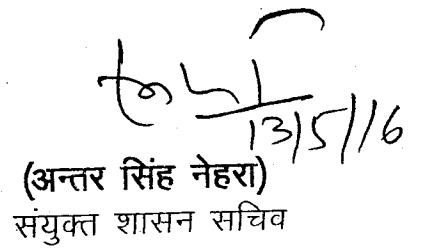 13/5/16
(अन्तर सिंह नेहरा)
संयुक्त शासन सचिव